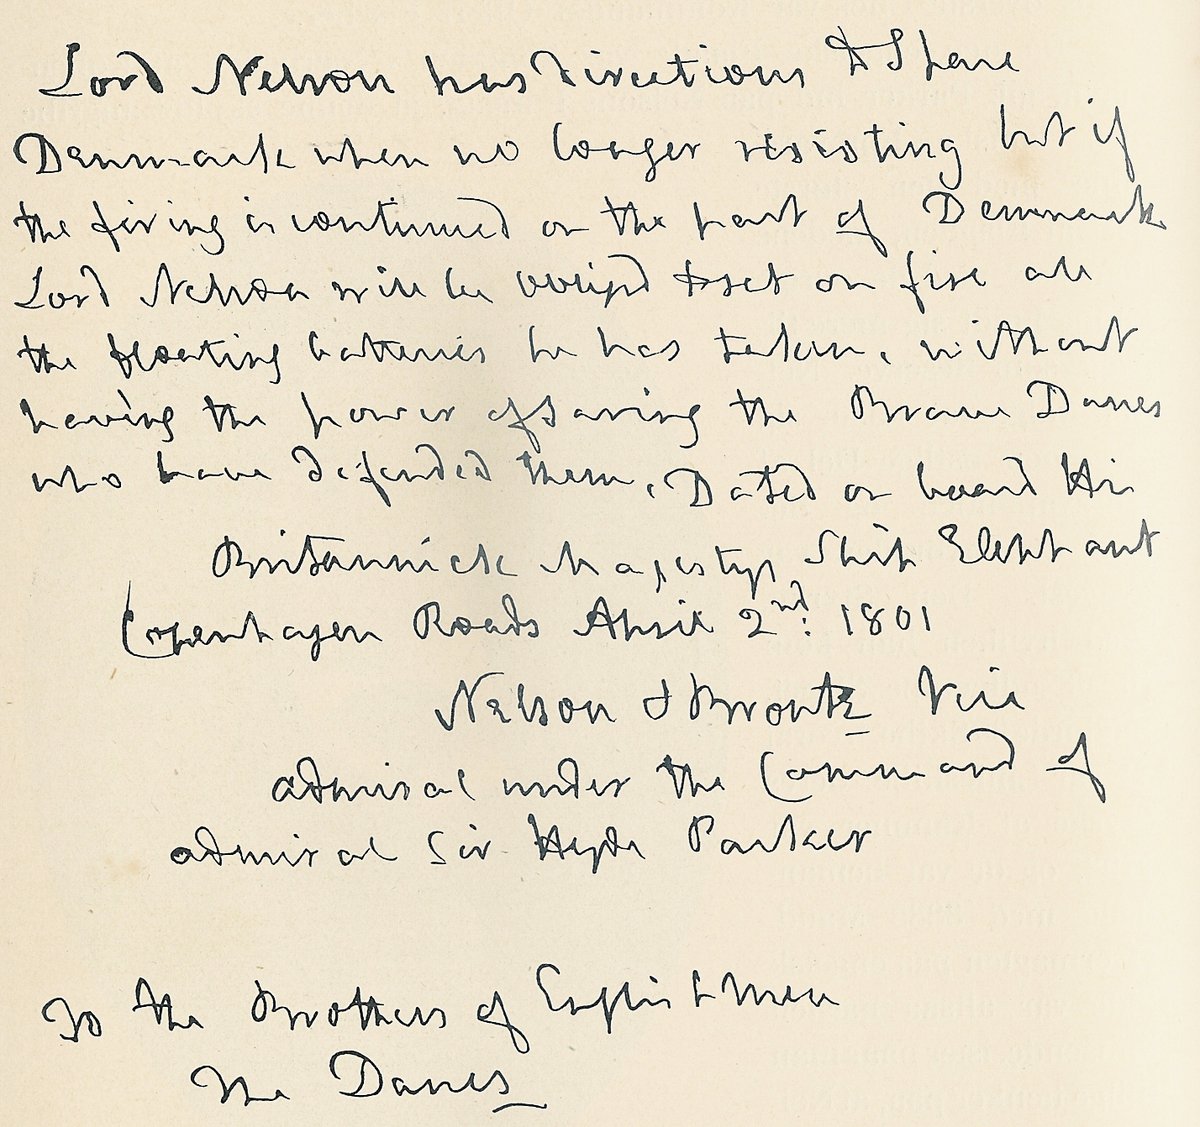 Lord Nelson has directions to Spare
Denmark when no longer resisting but if
the firing is continued on the part of Denmark
Lord Nelson will be obliged to set on fire all
the floating batteries he has taken, without
having the power of saving the Brave Danes
who have defended them. Dated on board His
Britannick Majestys Ship Elephant
Copenhagen Roads April 2nd: 1801
Nelson & Bronte Vice
admiral under the Command of
admiral Sir Hyde Parker
To the Brothers of Englishmen
The Danes